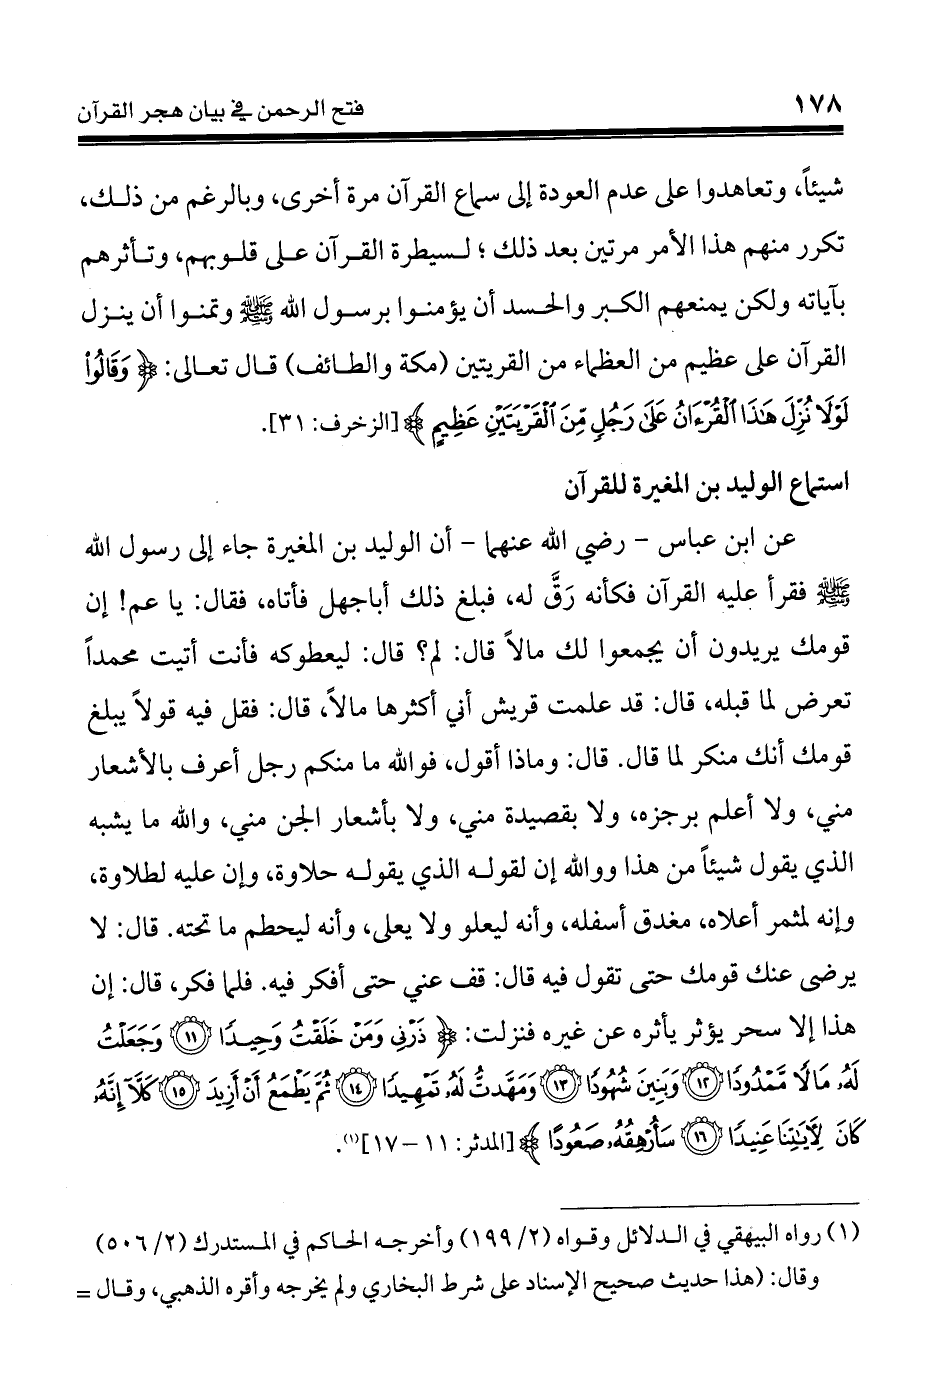 ١٧٨ فتح الرحمن في بيان هجر القرآن
شيئاً، وتعاهدوا على عدم العودة إلى سماع القرآن مرة أخرى، وبالرغم من ذلك،
تكرر منهم هذا الأمر مرتين بعد ذلك ؛ لسيطرة القرآن على قلوبهم، وتأثرهم
بآياته ولكن يمنعهم الكبر والحسد أن يؤمنوا برسول الله ﷺ وتمنوا أن ينزل
القرآن على عظيم من العظماء من القريتين (مكة والطائف) قال تعالى: ﴿ وَقَالُواْ
لَوْلَا نُزِّلَ هَٰذَا ٱلْقُرْءَانُ عَلَىٰ رَجُلٍ مِّنَ ٱلْقَرْيَتَيْنِ عَظِيمٍ ﴾ [الزخرف: ٣١].
استماع الوليد بن المغيرة للقرآن
عن ابن عباس - رضي الله عنهما - أن الوليد بن المغيرة جاء إلى رسول الله
ﷺ فقرأ عليه القرآن فكأنه رَقَّ له، فبلغ ذلك أباجهل فأتاه، فقال: يا عم! إن
قومك يريدون أن يجمعوا لك مالاً قال: لم؟ قال: ليعطوكه فأنت أتيت محمداً
تعرض لما قبله، قال: قد علمت قريش أني أكثرها مالاً، قال: فقل فيه قولاً يبلغ
قومك أنك منكر لما قال. قال: وماذا أقول، فوالله ما منكم رجل أعرف بالأشعار
مني، ولا أعلم برجزه، ولا بقصيدة مني، ولا بأشعار الجن مني، والله ما يشبه
الذي يقول شيئاً من هذا ووالله إن لقوله الذي يقوله حلاوة، وإن عليه لطلاوة،
وإنه لمثمر أعلاه، مغدق أسفله، وأنه ليعلو ولا يعلى، وأنه ليحطم ما تحته. قال: لا
يرضى عنك قومك حتى تقول فيه قال: قف عني حتى أفكر فيه. فلما فكر، قال: إن
هذا إلا سحر يؤثر يأثره عن غيره فنزلت: ﴿ ذَرْنِى وَمَنْ خَلَقْتُ وَحِيدًا ١١ وَجَعَلْتُ
لَهُۥ مَالًا مَّمْدُودًا ١٢ وَبَنِينَ شُهُودًا ١٣ وَمَهَّدتُّ لَهُۥ تَمْهِيدًا ١٤ ثُمَّ يَطْمَعُ أَنْ أَزِيدَ ١٥ كَلَّآ إِنَّهُۥ
كَانَ لِأَيَٰتِنَا عَنِيدًا ١٦ سَأُرْهِقُهُۥ صَعُودًا ﴾ [المدثر: ١١ - ١٧](١).
(١) رواه البيهقي في الدلائل وقواه (١٩٩/٢) وأخرجه الحاكم في المستدرك (٥٠٦/٢)
وقال: (هذا حديث صحيح الإسناد على شرط البخاري ولم يخرجه وأقره الذهبي، وقال =